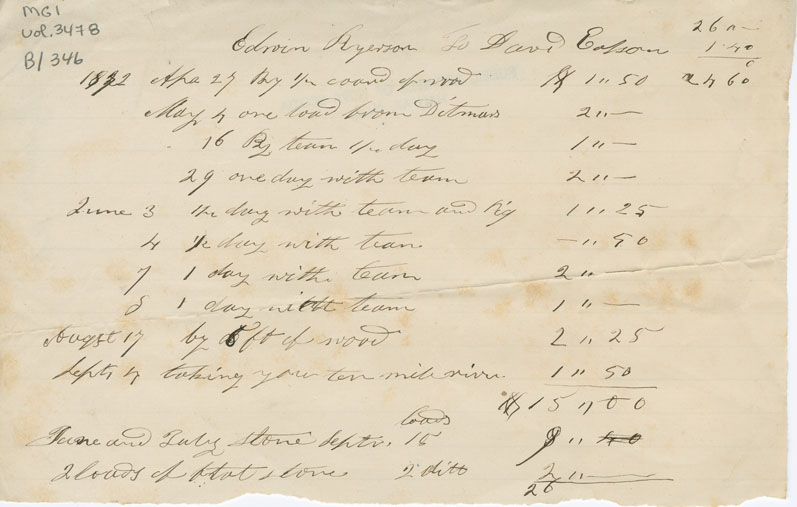 MG1
vol. 3478
B/346
26 " —
1 " 40
24 60
Edwin Ryerson To David Eosson
1892 Apr 27 By 1/2 coard of wood $ 1 " 50
May 4 one load from Ditmars 2 " —
16 By team 1/2 day 1 " —
29 one day with team 2 " —
June 3 1/2 day with team and Rig 1 " 25
4 1/2 day with team — " 50
7 1 day with team 2 " —
8 1 day with team 1 " —
August 17 by 6 ft of wood 2 " 25
Septr 4 taking you ten mile river 1 " 50
$ 15 " 00
June and July stone Septr. 15 loads 9 " 40
2 loads of flat stone 2 ditt 2 " —
26